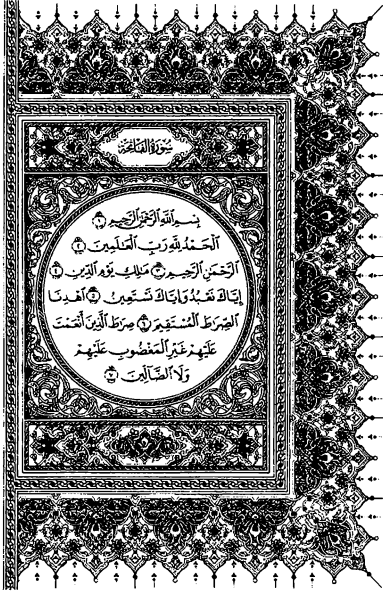 سُورَةُ الفَاتِحَة
بِسْمِ اللَّهِ الرَّحْمَٰنِ الرَّحِيمِ ١
الْحَمْدُ لِلَّهِ رَبِّ الْعَالَمِينَ ٢
الرَّحْمَٰنِ الرَّحِيمِ ٣ مَالِكِ يَوْمِ الدِّينِ ٤
إِيَّاكَ نَعْبُدُ وَإِيَّاكَ نَسْتَعِينُ ٥ اهْدِنَا
الصِّرَاطَ الْمُسْتَقِيمَ ٦ صِرَاطَ الَّذِينَ أَنْعَمْتَ
عَلَيْهِمْ غَيْرِ الْمَغْضُوبِ عَلَيْهِمْ
وَلَا الضَّالِّينَ ٧